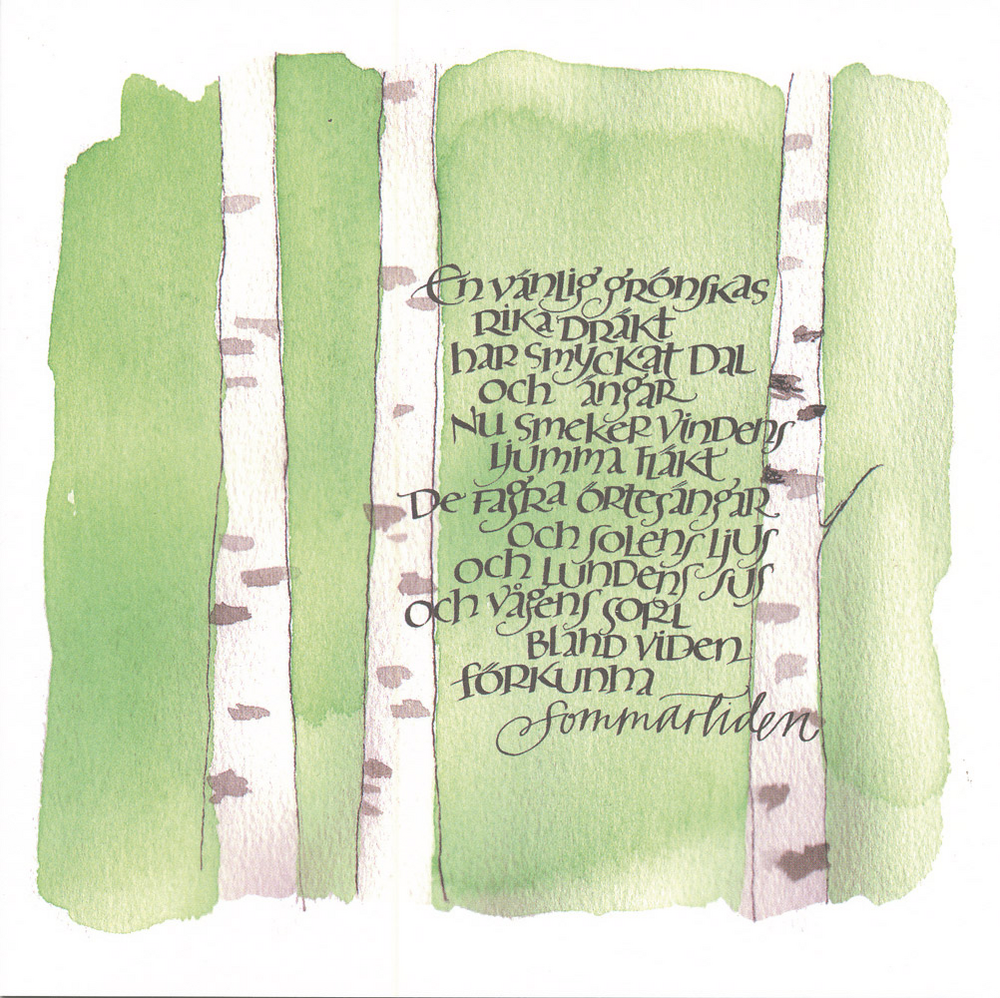 En vänlig grönskas
rika dräkt
har smyckat dal
och ängar
Nu smeker vindens
ljumma fläkt
De fagra örtesängar
och solens ljus
och lundens sus
och vågens sorl
bland viden
förkunna
sommartiden